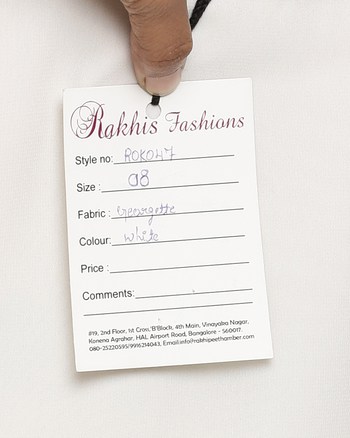 Rakhis Fashions
Style no: ROKO47
Size : 08
Fabric : Georgette
Colour: white
Price :
Comments:
#19, 2nd Floor, Ist Cross,'B'Block, 4th Main, Vinayaka Nagar,
Konena Agrahar, HAL Airport Road, Bangalore - 560017.
080-25220595/9916214043, Email:info@rakhipeethamber.com